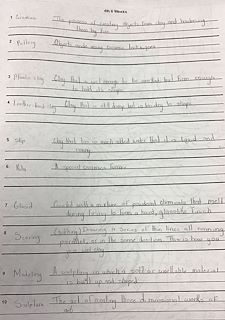 1 Ceramics The process of creating objects from clay and hardening
them by fire
2 Pottery Objects made using ceramic techniques
3 Plastic clay Clay that is wet enough to be but firm enough
to hold its shape
4 Leather hard clay Clay that is still damp but is too dry to shape
5 Slip Clay that has so much added water that it is liquid and
runny.
6 Kiln A special ceramics furnace
7 Glazed Coated with a mixture of powdered chemicals that melt
during firing to form a hard, glasslike finish
8 Scoring Drawing a series of thin lines all running
parallel, or in the same direction. This is how you
wet clay
9 Modeling A sculpting in which a soft or workable material
is built up and shaped
10 Sculpture The act of making three dimensional works of
art